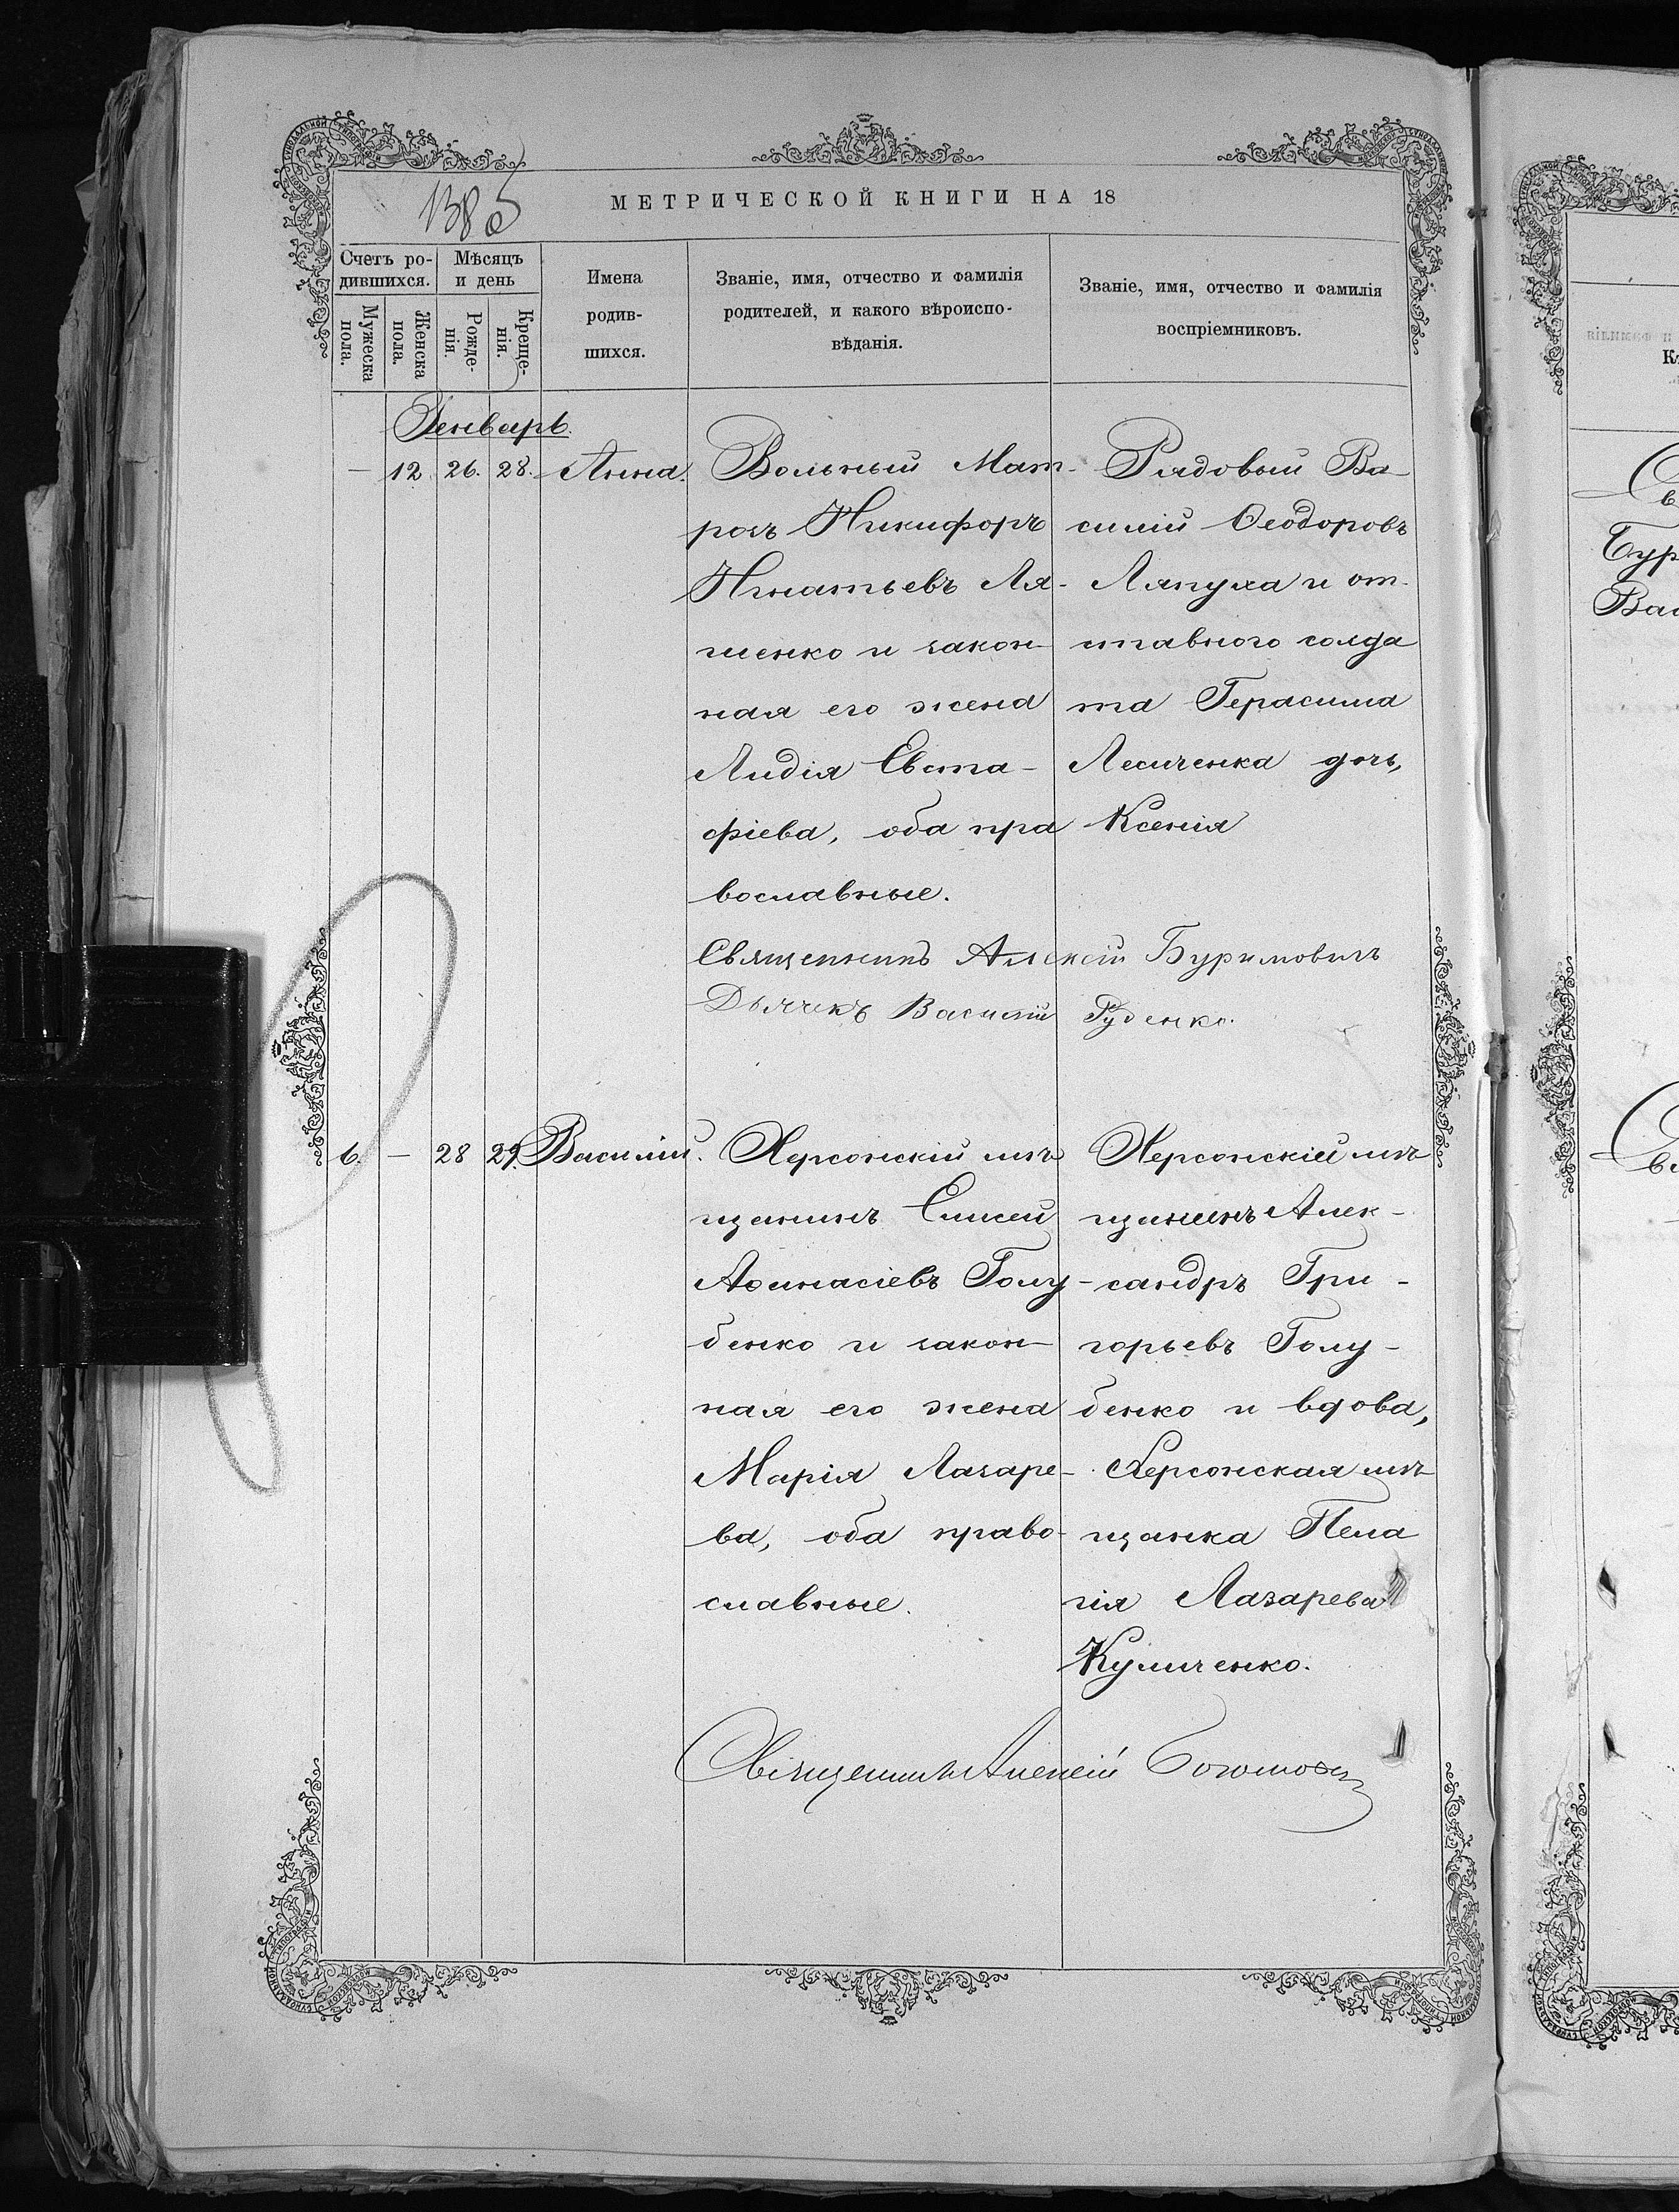 МЕТРИЧЕСКОЙ КНИГИ НА 18
Счетъ родившихся.
Мѣсяцъ и день
Мужеска пола.
Женска пола.
Рожденія.
Крещенія.
Имена
родив-
шихся.
Званіе, имя, отчество и фамилія
родителей, и какого вѣроиспо-
вѣданія.
Званіе, имя, отчество и фамилія
воспріемниковъ.
Генварь.
— 12 26. 28. Анна.
Вольный Мат-
росъ Никифоръ
Игнатьевъ Ля-
шенко и закон-
ная его жена
Лидія Евста-
фіева, оба пра
вославные.
Рядовый Ва-
силій Ѳеодоровъ
Ляпуха и от-
ставного солда
та Герасима
Лесиченка дочь,
Ксенія
Священникъ Алексій
Дьячекъ Василій Руденко.
6. — 28 29. Василій.
Херсонскій мѣ
щанинъ Елисей
Аѳанасіевъ Голу-
бенко и закон-
ная его жена
Марія Лазаре-
ва, оба право-
славные.
Херсонскій мѣ-
щанинъ Алек-
сандръ Гри-
горьевъ Голу-
бенко и вдова,
Херсонская мѣ-
щанка Пела
гія Лазарева
Куличенко.
Священникъ Алексій
Бур
Вас